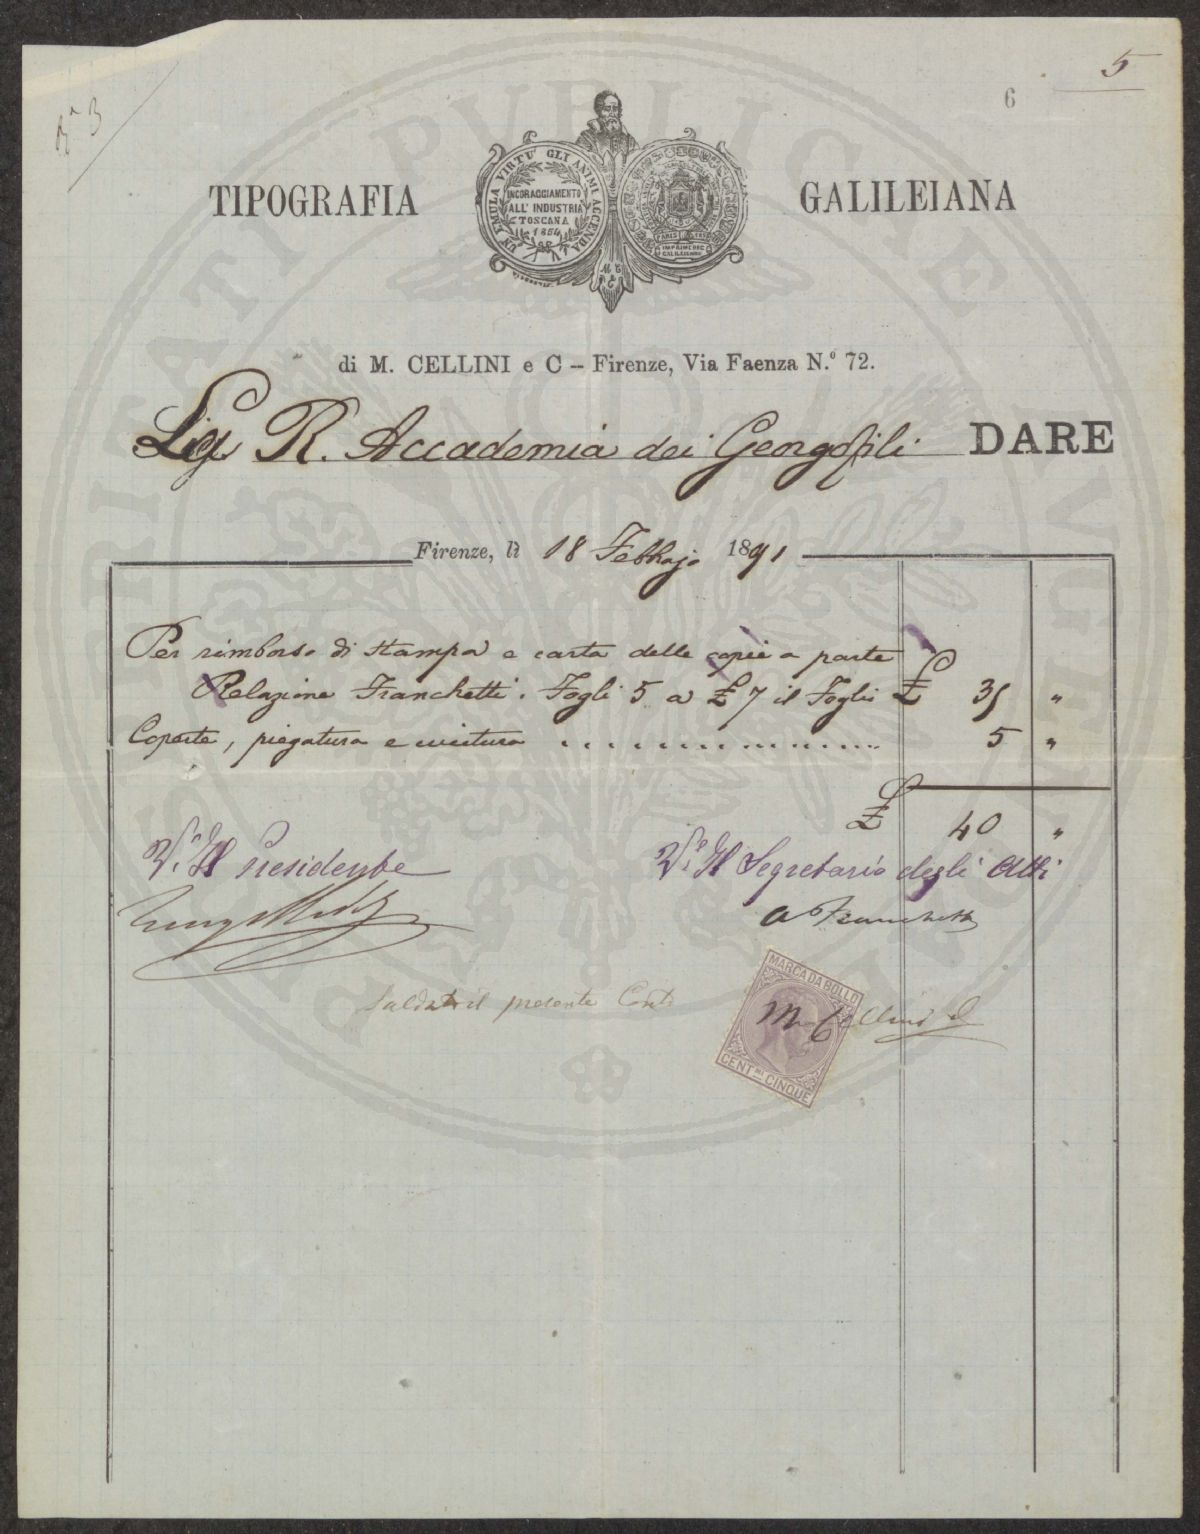 5
6
N.° 3
TIPOGRAFIA GALILEIANA
UN' EMULA VIRTU' GLI ANIMI ACCENDA
INCORAGGIAMENTO
ALL' INDUSTRIA
TOSCANA
1854
di M. CELLINI e C – Firenze, Via Faenza N.º 72.
Sig. R. Accademia dei Georgofili DARE
Firenze, lì 18 Febbrajo 1891
Per rimborso di stampa e carta delle copie a parte
Relazione Franchetti. Fogli 5 a £ 7 il Foglio £ 35 "
Coperte, piegatura e cucitura .......... 5 "
£ 40 "
V.° Il Presidente
V.° Il Segretario degli Atti
A Franchetti
Saldato il presente Conto
MARCA DA BOLLO
M. Cellini
CENT.MI CINQUE